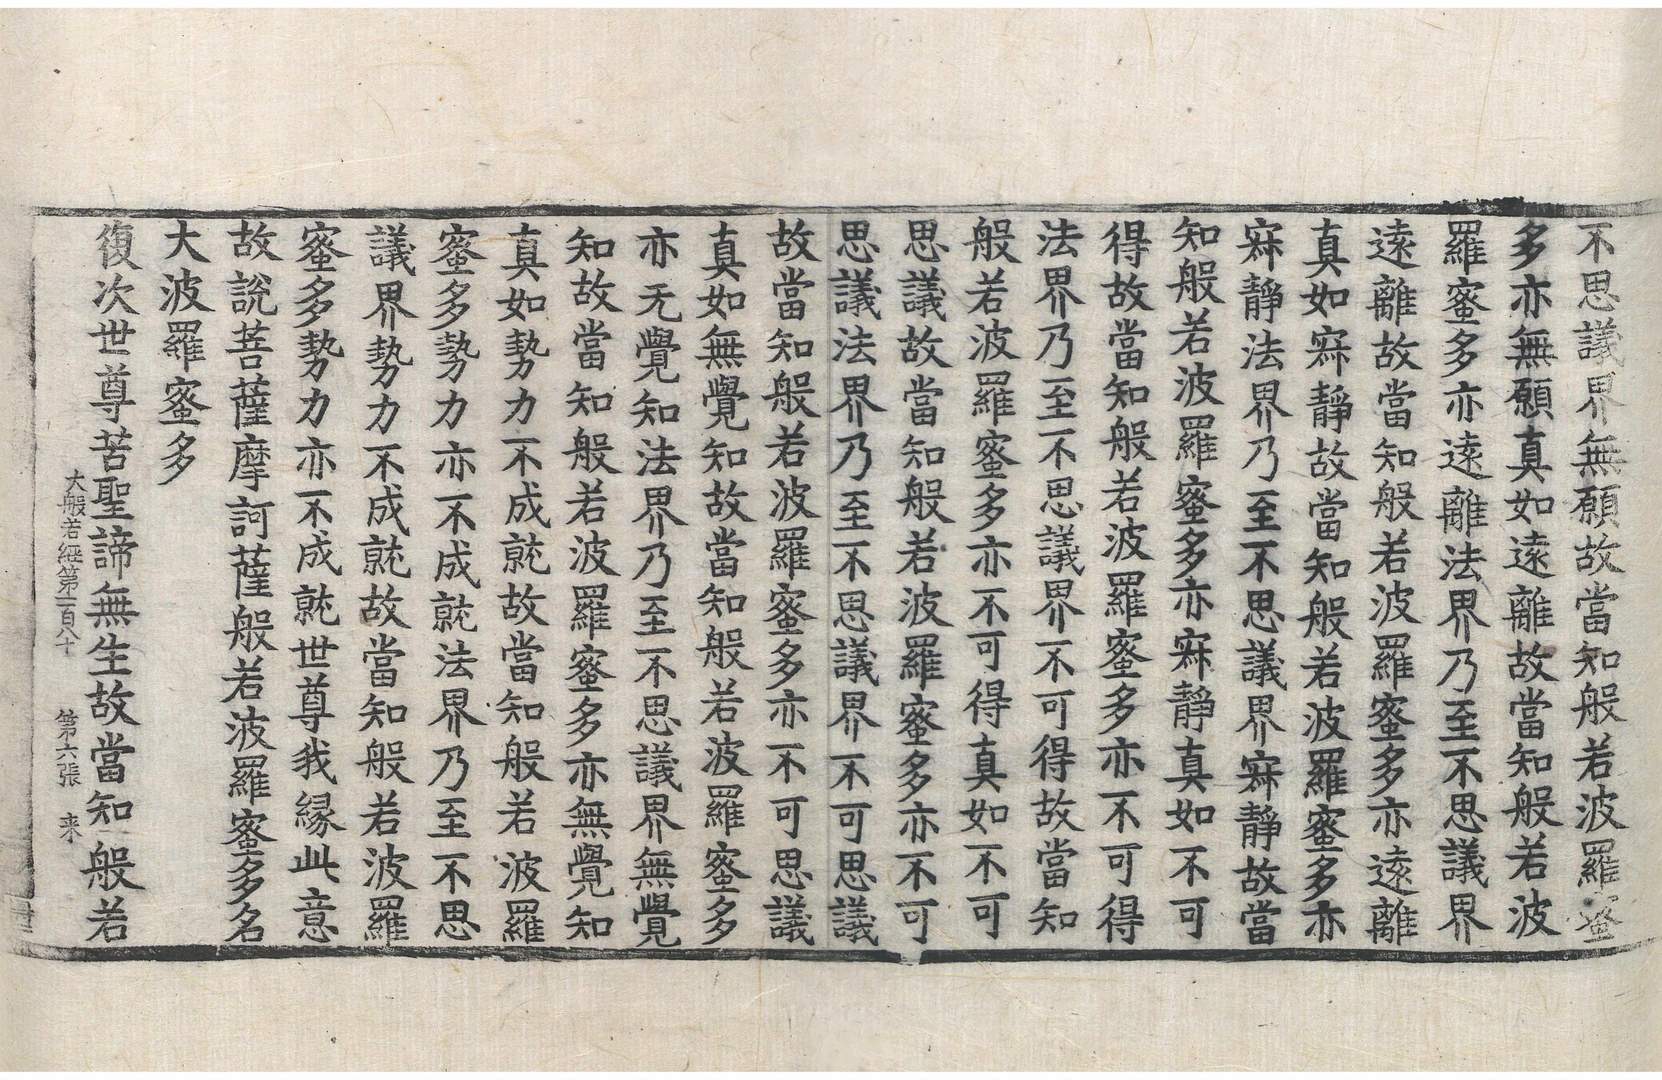 不思議界無願故當知般若波羅蜜
多亦無願真如遠離故當知般若波
羅蜜多亦遠離法界乃至不思議界
遠離故當知般若波羅蜜多亦遠離
真如寂靜故當知般若波羅蜜多亦
寂靜法界乃至不思議界寂靜故當
知般若波羅蜜多亦寂靜真如不可
得故當知般若波羅蜜多亦不可得
法界乃至不思議界不可得故當知
般若波羅蜜多亦不可得真如不可
思議故當知般若波羅蜜多亦不可
思議法界乃至不思議界不可思議
故當知般若波羅蜜多亦不可思議
真如無覺知故當知般若波羅蜜多
亦无覺知法界乃至不思議界無覺
知故當知般若波羅蜜多亦無覺知
真如勢力不成就故當知般若波羅
蜜多勢力亦不成就法界乃至不思
議界勢力不成就故當知般若波羅
蜜多勢力亦不成就世尊我緣此意
故說菩薩摩訶薩般若波羅蜜多名
大波羅蜜多
復次世尊苦聖諦無生故當知般若
大般若經第一百八十 第六張 来